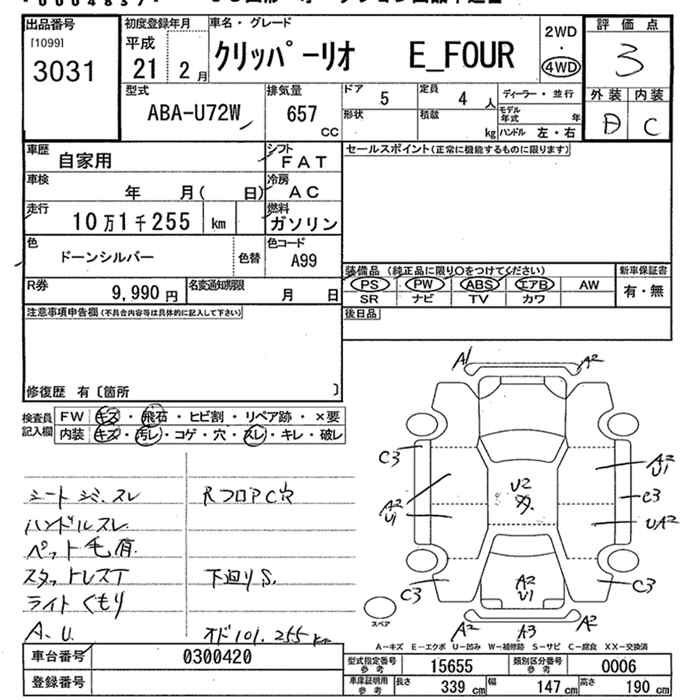 出品番号
[1099]
3031
初度登録年月
平成
21年 2月
車名・グレード
クリッパーリオ E_FOUR
2WD
・
4WD
評価点
3
外装 内装
D C
型式
ABA-U72W
排気量
657
CC
ドア 5
定員 4 人
ディーラー・並行
形状
積載 kg
モデル年式 年
ハンドル 左・右
車歴
自家用
シフト
FAT
セールスポイント(正常に機能するものに限ります)
車検
年 月( 日)
冷房
AC
走行
10万1千255 km
燃料
ガソリン
色
ドーンシルバー
色替
色コード
A99
装備品 (純正品に限り○をつけてください)
新車保証書
PS PW ABS エアB AW
有・無
SR ナビ TV カワ
R券
9,990円
名変通知期限
月 日
後日品
注意事項申告欄(不具合内容等は具体的に記入して下さい)
修復歴 有〔箇所 〕
検査員
記入欄
FW キズ・飛石・ヒビ割・リペア跡・×要
内装 キズ・汚レ・コゲ・穴・スレ・キレ・破レ
シート シミ、スレ
RフロアC穴
ハンドルスレ
ペット毛有
スタットレスT
下廻りS.
ライトくもり
A.U.
オド101.255km
A1 A2
C3
A2
U1
C3
A2
U1
U2
UA2
C3
A2
U1
C3
A2 A3 A2
スペア
A-キズ E-エクボ U-凹み W-補修跡 S-サビ C-腐食 XX-交換済
車台番号
0300420
型式指定番号
参考
15655
類別区分番号
参考
0006
登録番号
車庫証明用
参考
長さ 339 cm
幅 147 cm
高さ 190 cm